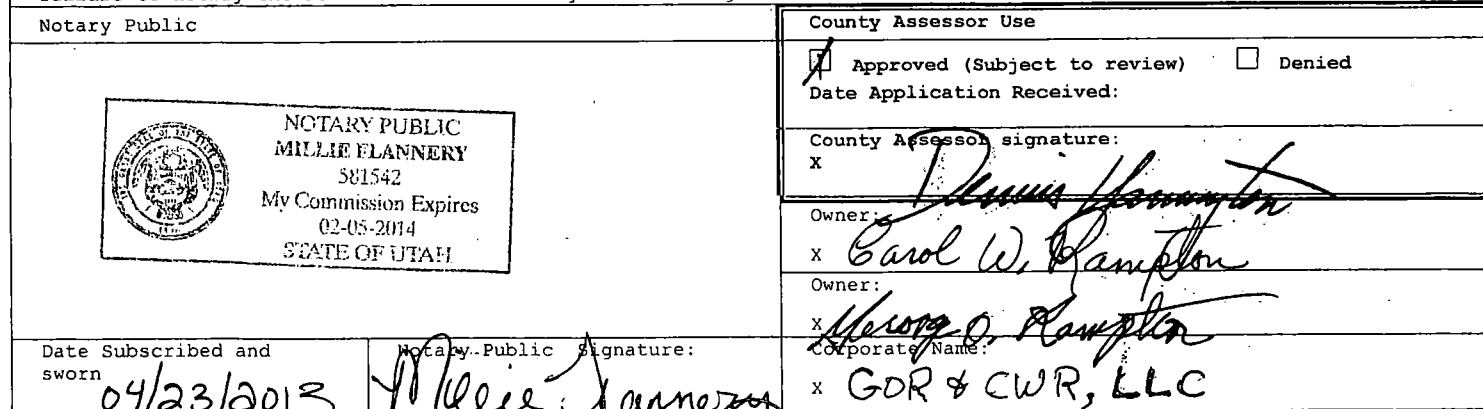 Notary Public
NOTARY PUBLIC
MILLIE FLANNERY
581542
My Commission Expires
02-05-2014
STATE OF UTAH
Date Subscribed and
sworn
04/23/2013
Notary Public Signature:
Millie Flannery
County Assessor Use
Approved (Subject to review) Denied
Date Application Received:
County Assessor signature:
X
Dennis
Owner:
x Carol W. Rampton
Owner:
x O. Rampton
Corporate Name:
x GOR & CWR, LLC